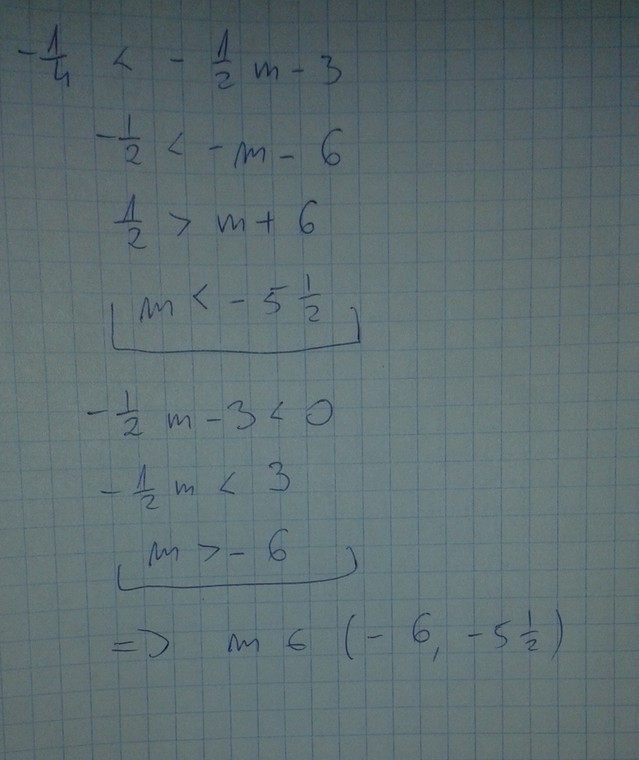 -1/4 < -1/2 m - 3
-1/2 < -m - 6
1/2 > m + 6
m < -5 1/2
-1/2 m - 3 < 0
-1/2 m < 3
m > -6
=> m ∈ (-6, -5 1/2)